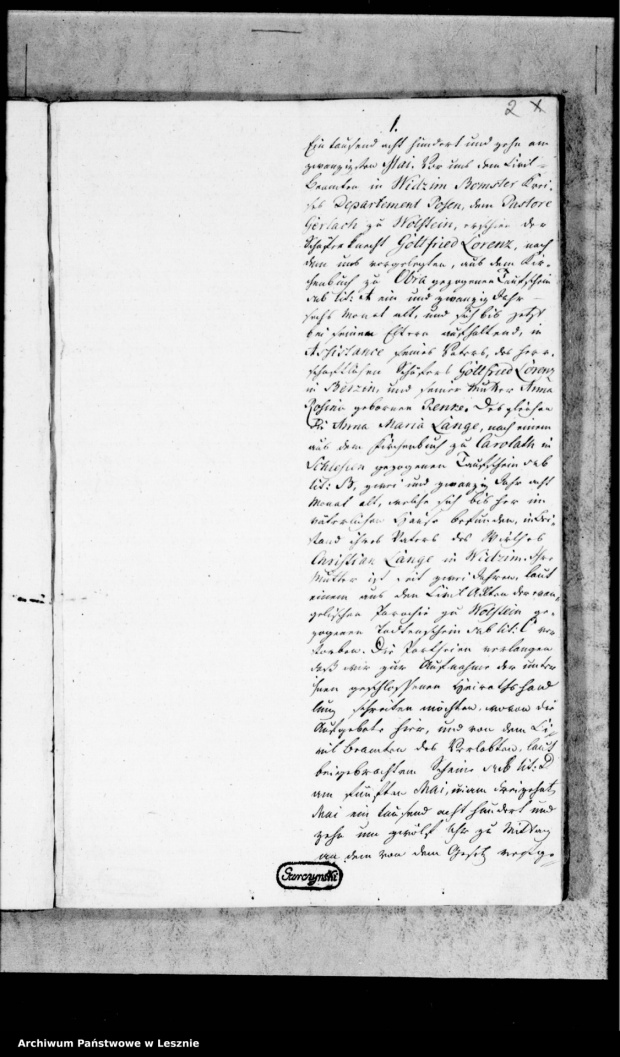 2 X
1.
Ein tausend acht hundert und zehn am
zwanzigsten Mai. Vor uns dem Civil-
Beamten in Widzim Bomster Krei-
ses Departement Posen, dem Pastore
Gerlach zu Wolstein, erschien der
Schäferknecht Gottfried Lorenz, nach
dem uns vorgelegten, aus dem Kir-
chenbuch zu Obra gezogenen Taufschein
sub lit: A ein und zwanzig Jahr
sechs Monat alt, und sich bis jetzt
bei seinen Eltern aufhaltend, in
Assistance seines Vaters, des herr-
schaftlichen Schäfers Gottfried Lorenz
in und seiner Mutter Anna
Rosina gebornen Renke. Desgleichen
die Anna Maria Lange, nach einem
aus dem Kirchenbuch zu Carolath in
Schlesien gezogenen Taufschein sub
lit: B, zwei und zwanzig Jahr acht
Monat alt, welche sich bisher im
väterlichen Hause befunden, in Bei-
stand ihres Vaters des Wirthes
Christian Lange in Widzim. Ihre
Mutter ist seit zwei Jahren, laut
einem aus den Civil Akten der evan-
gelischen Parochie zu Wolstein ge-
zogenen Todtenschein sub lit: C ver-
storben. Die Partheien verlangen
daß wir zur Aufnahme der unter
ihnen geschlossenen Heirathshand
lung schreiten möchten, wovon die
Aufgebote hier, und von dem Ci-
vil Beamten des Verlobten, laut
beigebrachtem Scheine sub lit: D
am fünften Mai, dreizehnten
Mai ein tausend acht hundert und
zehn um zwölf Uhr zu Mittag
an dem von dem Gesetz vorge-
Surczynski
Archiwum Państwowe w Lesznie